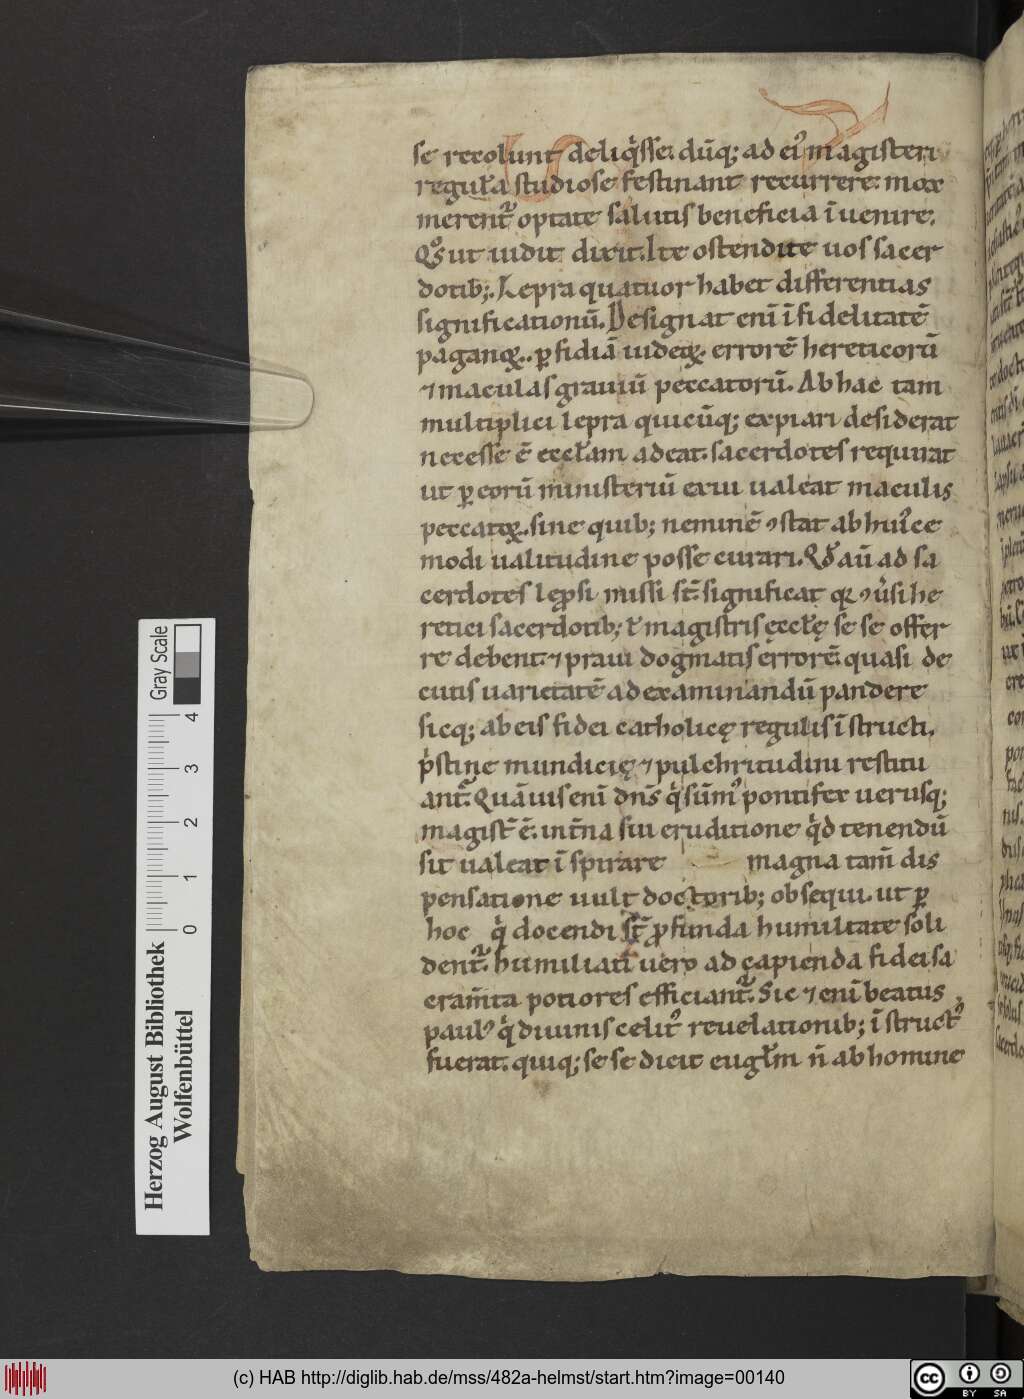 se recolunt deliq̇sse. dūq; ad ei᷒ magisteri
reguła studiose festinant recurrere. mox
merent᷑ optate salutis beneficia īuenire.
Qo᷒s ut uidit dixit. Ite ostendite uos sacer
dotib;. Lepra quatuor habet differentias
significationū. Designat enī īfidelitatē
paganoꝝ. ꝑfidiā iudeoꝝ. errorē hereticorū
⁊ maculas grauiū peccatorū. Ab hac tam
multiplici lepra quicūq; expiari desiderat
necesse ē eccłam adeat. sacerdotes requirat
ut ꝑ eorū ministeriū exui ualeat maculis
peccatoꝝ. sine quib; neminē ꝯstat ab hui᷒ce
modi ualitudine posse curari. Qđ aū ad sa
cerdotes leprosi missi st̄ significat
retici sacerdotib; ł magistris ęccłę se se offer
re debent. ⁊ praui dogmatis errorē. quasi de
cutis uarietatē ad examinandū pandere
sicq; ab eis fidei catholicę regulis īstructi.
p̍stine mundicię ⁊ pulchritudini restitu
ant᷑. Quāuis enī dn̄s q̍ sūm᷒ pontifex uerusq;
magist̄ ē. int̄na sui eruditione q̍d tenendū
sit ualeat īspirare magna tam̄ dis
pensatione uult doctorib; obsequi. ut ꝑ
hoc q̍ docendi st̄ ꝓfunda humilitate soli
dent᷑. humiliati uero ad capienda fidei sa
cram̄ta potiores efficiant᷑. Sic ⁊ enī beatus
paul᷒ q̍ diuinis celit᷒ reuelationib; īstruct᷒
fuerat. quiq; se se dicit eugłm n̄ ab homine
Gray Scale
4
3
2
1
0
Herzog August Bibliothek
Wolfenbüttel
(c) HAB http://diglib.hab.de/mss/482a-helmst/start.htm?image=00140
cc
BY SA